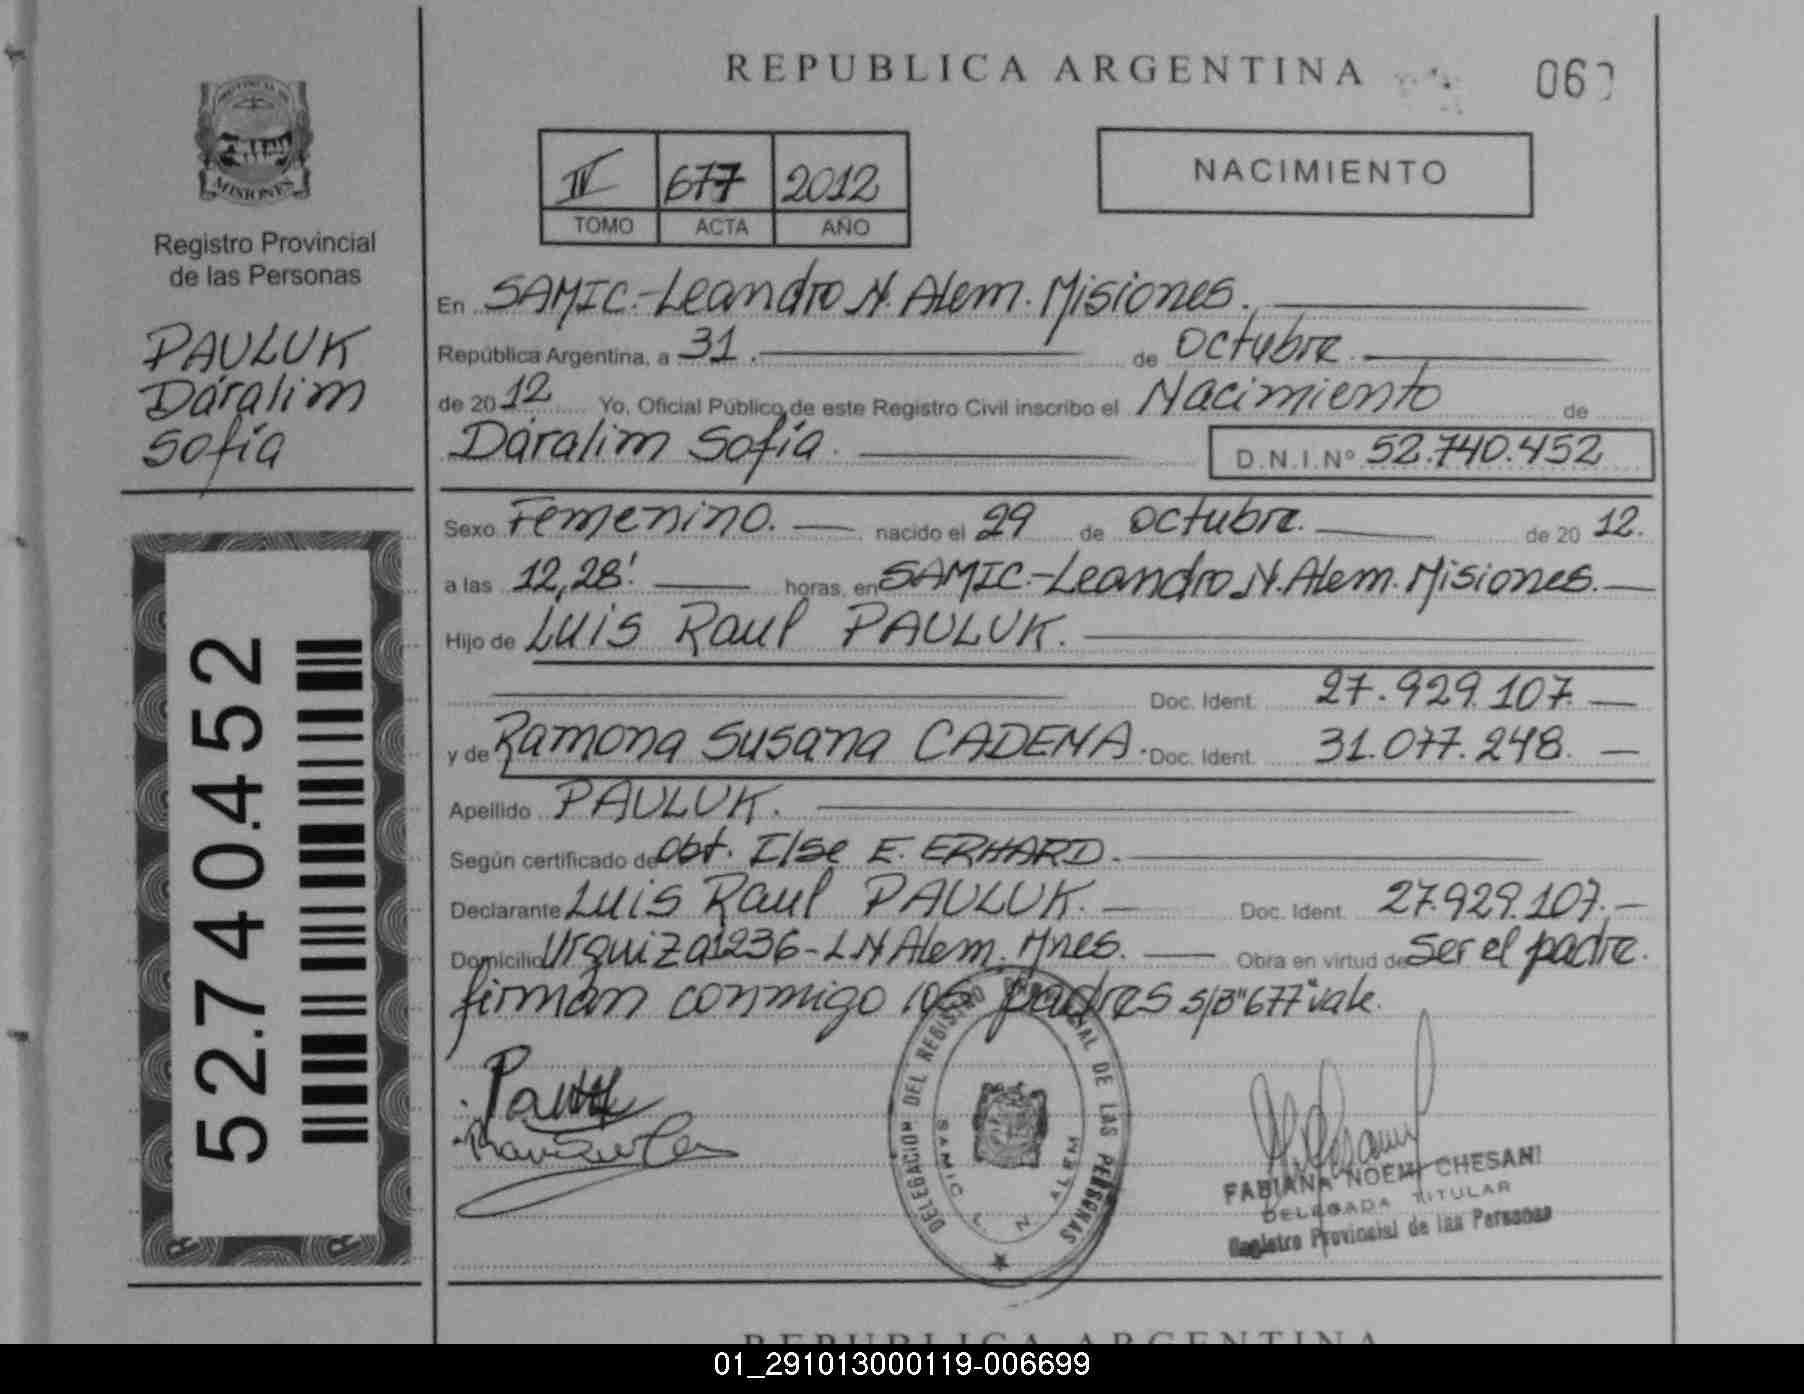 REPUBLICA ARGENTINA
PROVINCIA DE
MISIONES
Registro Provincial
de las Personas
PAULUK
Dáralim
Sofía
52.740.452
IV 677 2012
TOMO ACTA AÑO
NACIMIENTO
En SAMIC.-Leandro N. Alem. Misiones.
República Argentina, a 31. de octubre.
de 2012 Yo, Oficial Público de este Registro Civil inscribo el Nacimiento de
Dáralim Sofía. D.N.I.Nº 52.740.452
Sexo Femenino. nacido el 29 de octubre. de 20 12.
a las 12,28'. horas, en SAMIC.-Leandro N. Alem. Misiones.
Hijo de Luis Raul PAULUK.
Doc. Ident. 27.929.107.
y de Ramona Susana CADENA. Doc. Ident. 31.077.248.
Apellido PAULUK.
Según certificado de Obt. Ilse E. ERHARD.
Declarante Luis Raul PAULUK. Doc. Ident. 27.929.107.
Domicilio Urquiza 1236-LN Alem. Mnes. Obra en virtud de ser el padre.
firman conmigo los padres s/B "677" vale.
DELEGACION DEL REGISTRO PROVINCIAL DE LAS PERSONAS
SAMIC L N ALEM
FABIANA NOEMI CHESANI
DELEGADA TITULAR
Registro Provincial de las Personas
REPUBLICA ARGENTINA
01_291013000119-006699